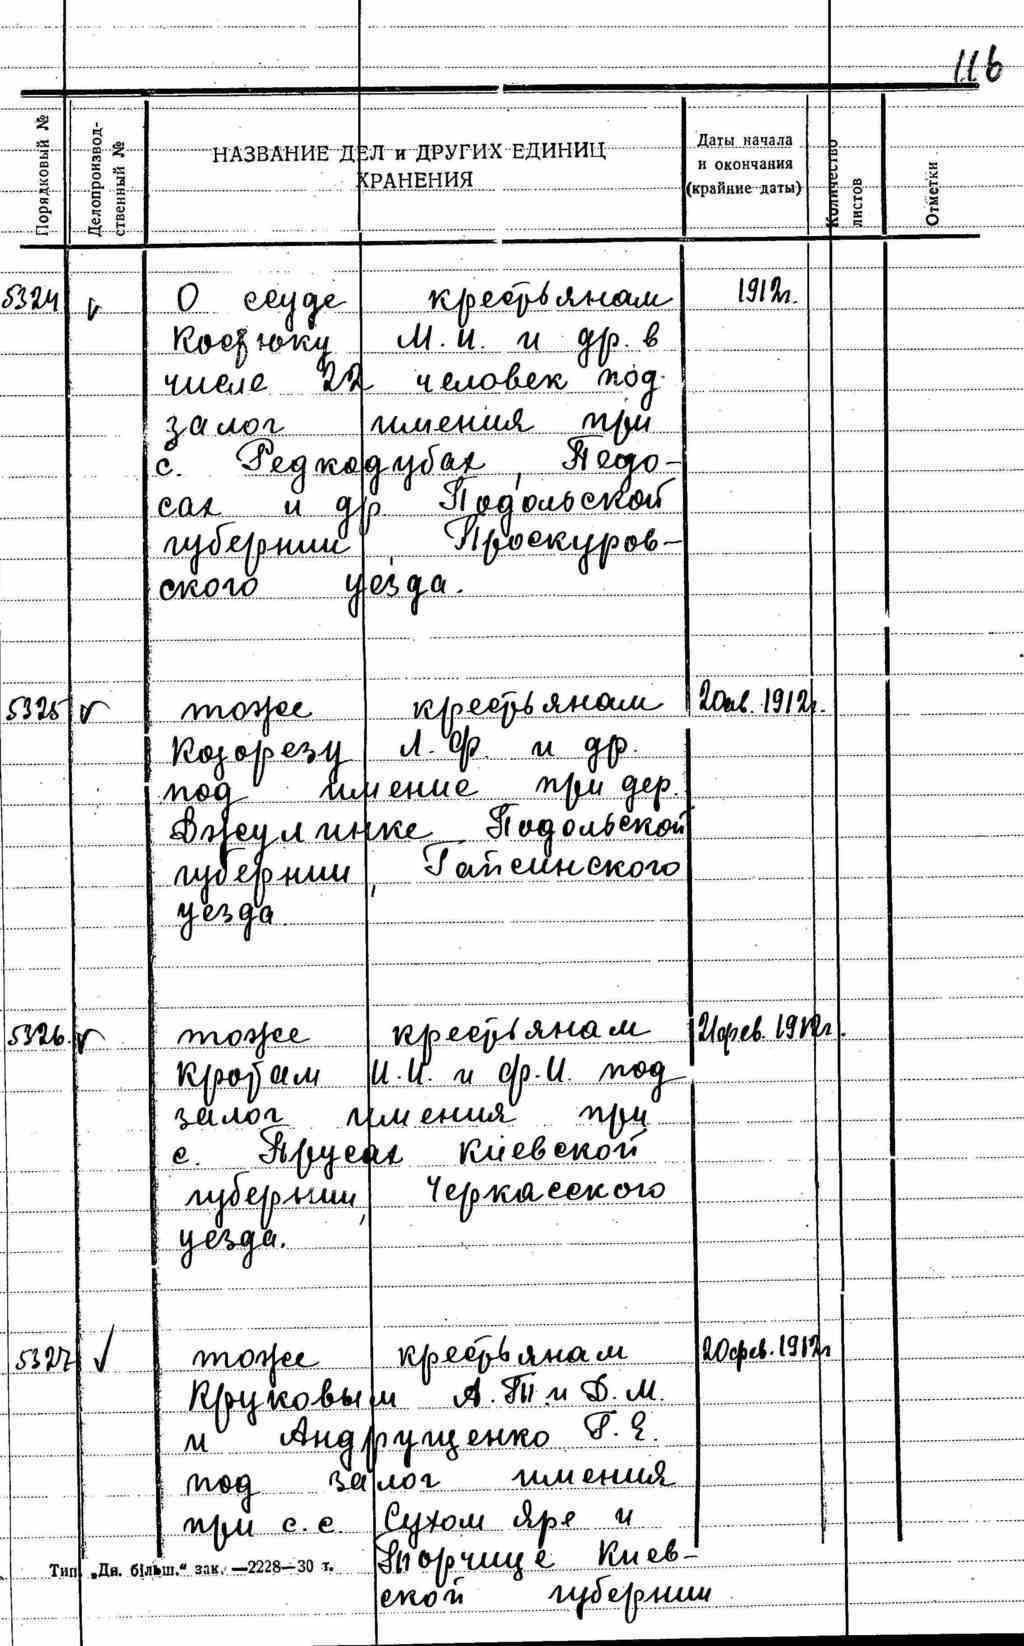 116
Порядковый №
Делопроизвод-
ственный №
НАЗВАНИЕ ДЕЛ и ДРУГИХ ЕДИНИЦ
ХРАНЕНИЯ
Даты начала
и окончания
(крайние даты)
Количество
листов
Отметки
5324 О ссуде крестьянам 1912г.
Костюку М.И. и др. в
числе 22 человек под
залог имения при
с. Редкодубах, Педо-
сах и др Подольской
губернии, Проскуров-
ского уезда.
5325 тоже крестьянам 20 1912г.
Козорезу Л.Ф. и др.
под имение при дер.
Джулинке Подольской
губернии, Гайсинского
уезда.
5326. тоже крестьянам 21 фев. 1912г.
Кротам И.И. и Ф.И. под
залог имения при
с. Прусах Киевской
губернии, Черкасского
уезда.
5327 тоже крестьянам 20 фев. 1912г
Круковым А.П. и Д.М.
и Андрущенко Г.Е.
под залог имения
при с.с. Сухом Яре и
Торчице Киев-
ской губернии
Тип. „Дн. більш." зак. —2228—30 т.